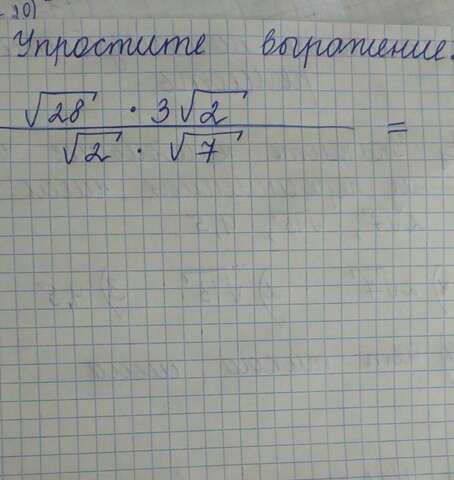 20)
Упростите выражение.
√28 · 3√2
√2 · √7 =